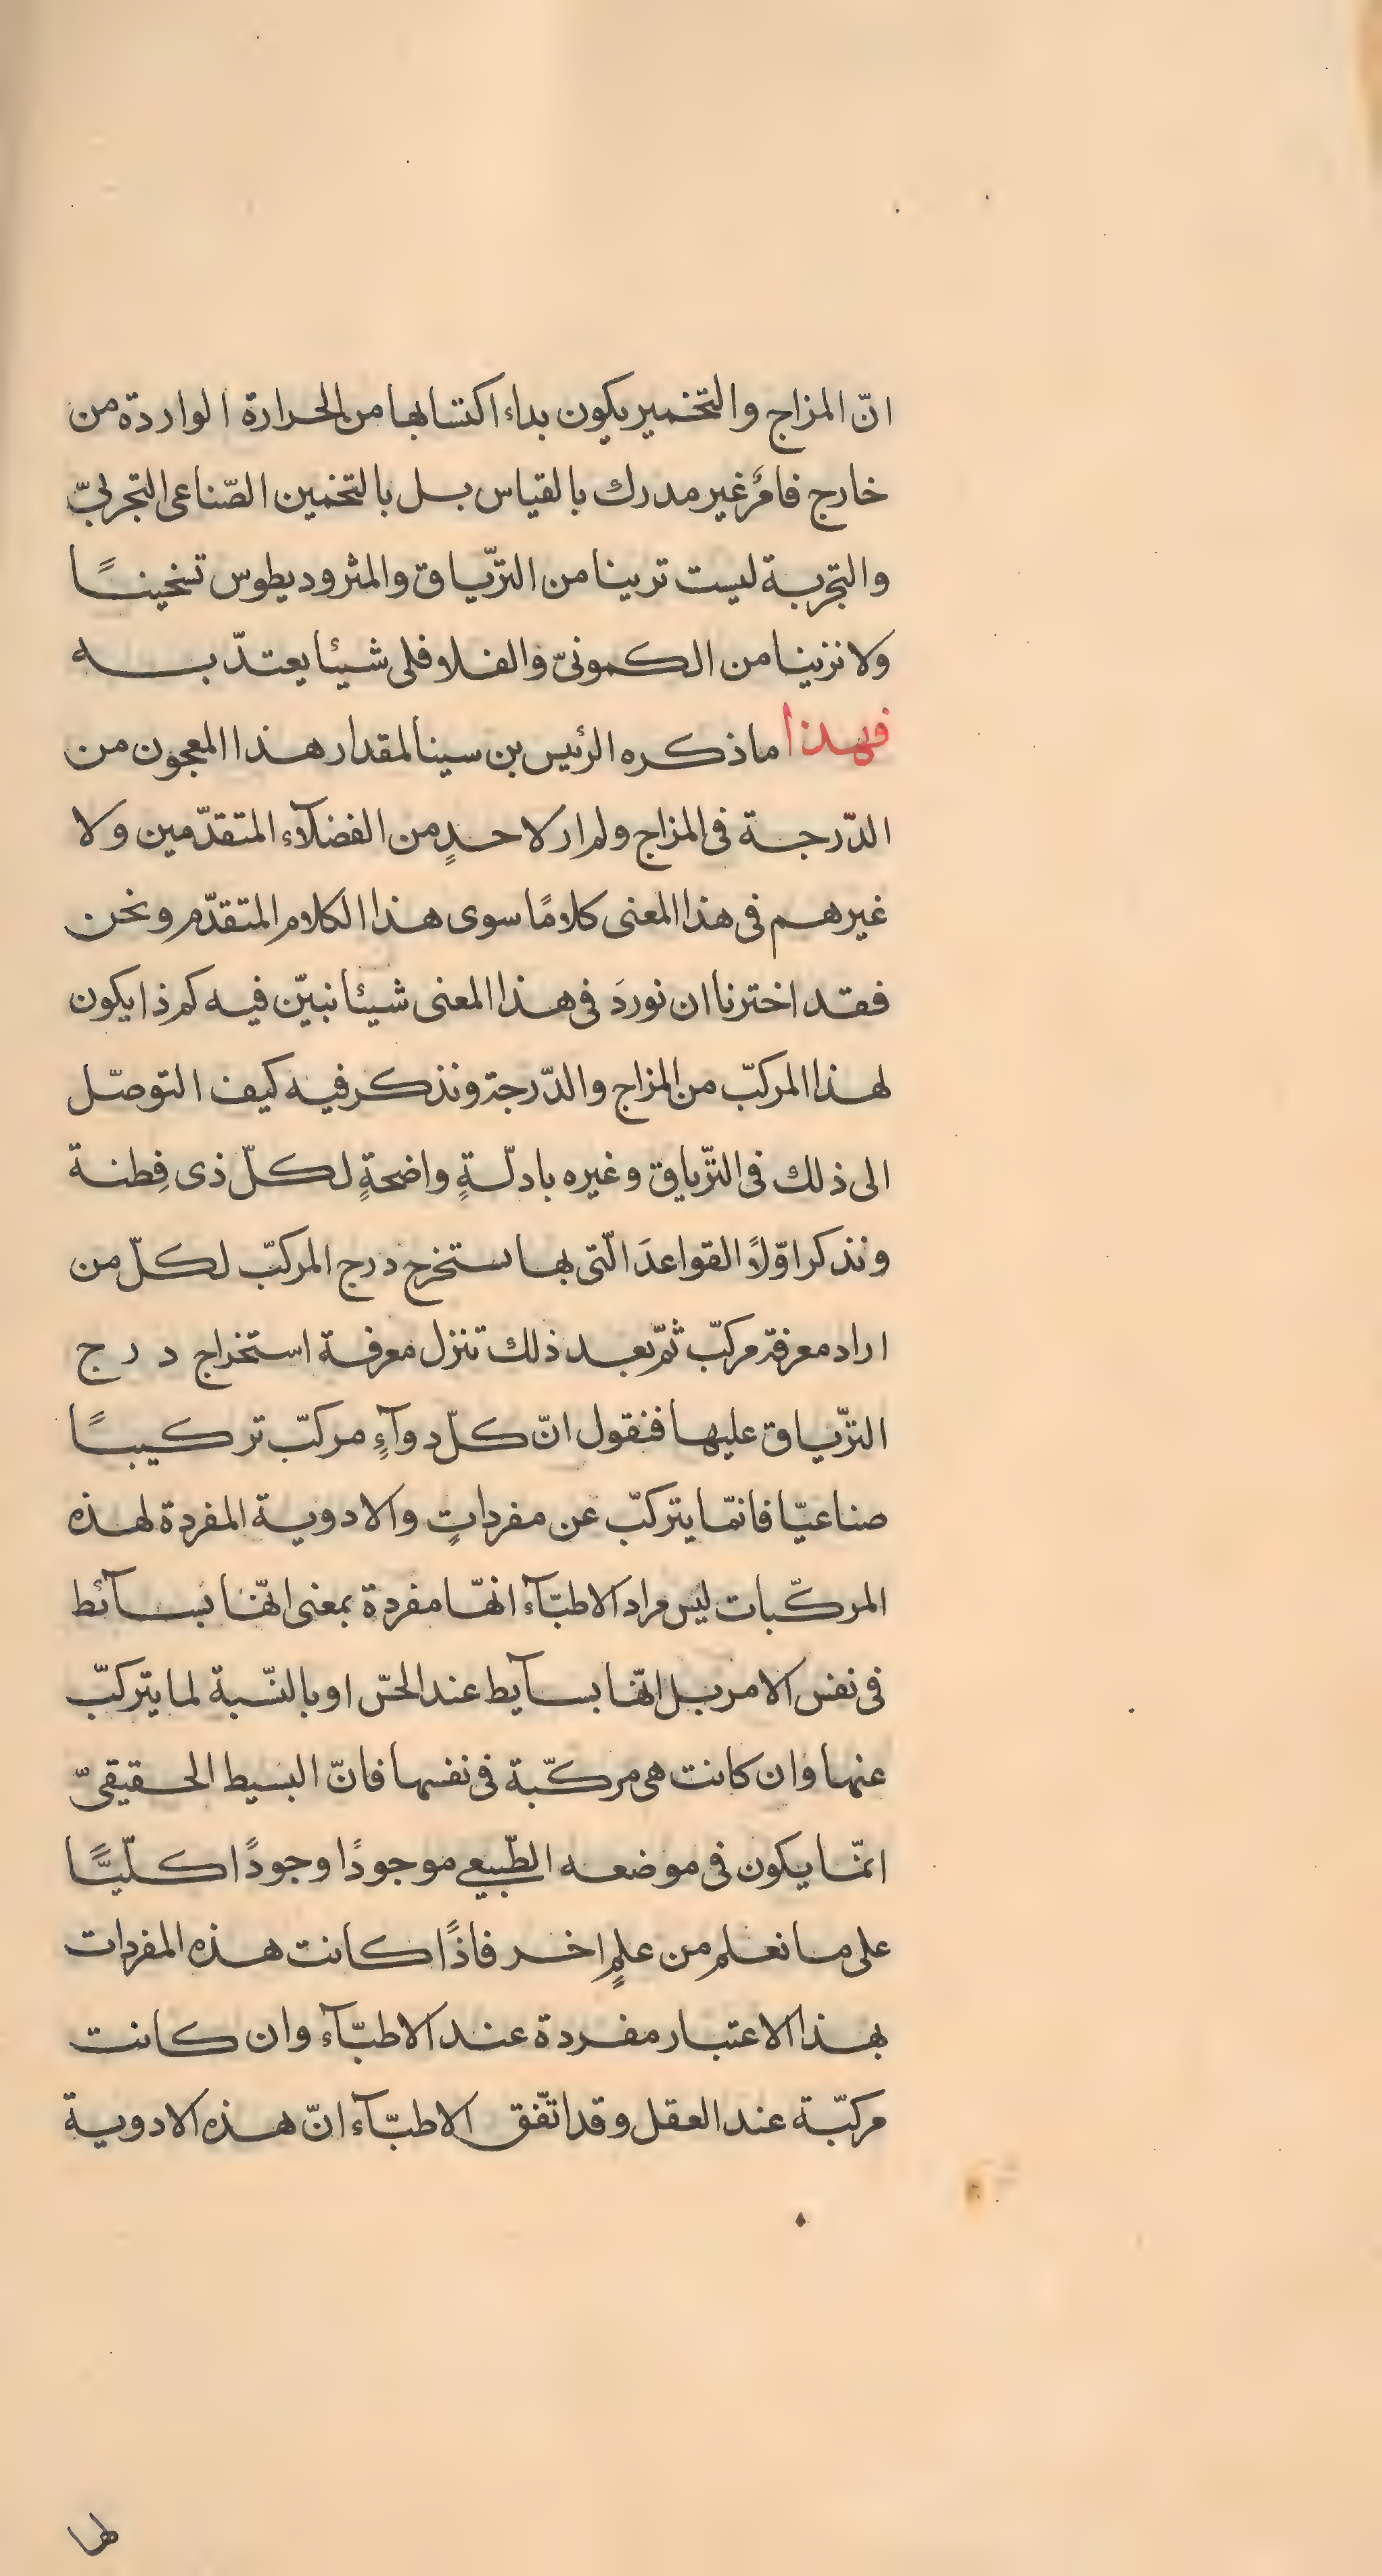 انّ المزاج والتخمير يكون بداء اكتسابها من الحرارة الواردة من
خارج فامرٌ غير مدرك بالقياس بل بالتخمين الصّناعى التجربىّ
والتجربة ليست ترينا من التّرياق والمثروديطوس تسخينًا
ولا نزينا من الكمونىّ والفلافلى شيئا يعتدّ به
فهذا ما ذكره الرئيس بن سينا لمقدار هذا المعجون من
الدّرجة فى المزاج ولم ار لاحدٍ من الفضلآء المتقدّمين ولا
غيرهم فى هذا المعنى كلامًا سوى هذا الكلام المتقدّم ونحن
فقد اخترنا ان نوردَ فى هذا المعنى شيئا نبيّن فيه كم ذا يكون
لهذا المركبّ من المزاج والدّرجة ونذكر فيه كيف التوصّل
الى ذلك فى التّرياق وغيره بادلّةٍ واضحةٍ لكلّ ذى فِطنة
ونذكر اوّلاً القواعدَ الّتى بها ستخرج درج المركبّ لكلّ من
اراد معرفة مركبّ ثمّ بعد ذلك تنزل معرفة استخراج درج
التّرياق عليها فنقول انّ كلّ دوآءٍ مركبّ تركيبًا
صناعيّا فانمّا يتركبّ عن مفرداتٍ والادوية المفردة لهذه
المركّبات ليس مراد الاطبّآء انهّا مفردة بمعنى انهّا بسآئط
فى نفس الامر بل انهّا بسآيط عند الحسّ او بالنّسبة لما يتركبّ
عنها وان كانت هى مركّبة فى نفسها فانّ البسيط الحقيقىّ
انمّا يكون فى موضعه الطّبيعي موجودًا وجودًا كلّيًّا
على ما نعلم من علمٍ اخر فاذًا كانت هذه المفردات
بهذا الاعتبار مفردة عند الاطبّآء وان كانت
مركبّة عند العقل وقد اتّفق الاطبّآء انّ هذه الادوية
لها